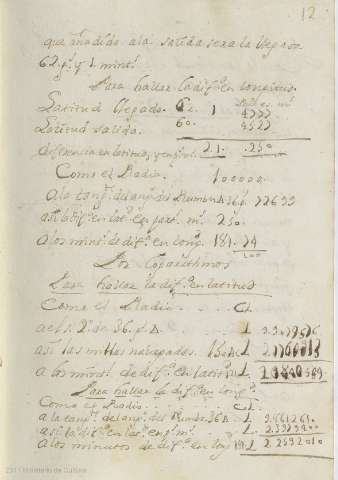 12
que añadido ala salida sera la llegada
62 g.s y 1 minto
Para hallar la dif.a en longitud.
Latitud llegada. 62. 1 4777
Latitud salida. 60. 4527
diferencia en latitud, y en 2.1. .250
Como el Radio. 100000.
Ala tang.te del ang.o del Rumbo 36 g.s 72699
asi la dif.a en lat.d en part.s m.s 250.
A los mint.s de dif.a en long.d 181. 74
Por Logarithmos
Para hallar la dif.a en latitud
Como el Radio CL.
a el s. 2.o de 36. g.s A. L
asi las millas navegadas. 150 L
a los mint.s de dif.a en latitud L
Para hallar la dif.a en long.d
Como el Radio CL.
a la tang.te del ang.o del Rumbo 36 A L 9.861261.
asi la dif.a en lat.d en p.s m.s L
A los minutos de dif.a en long 181. L
2311 Ministerio de Cultura